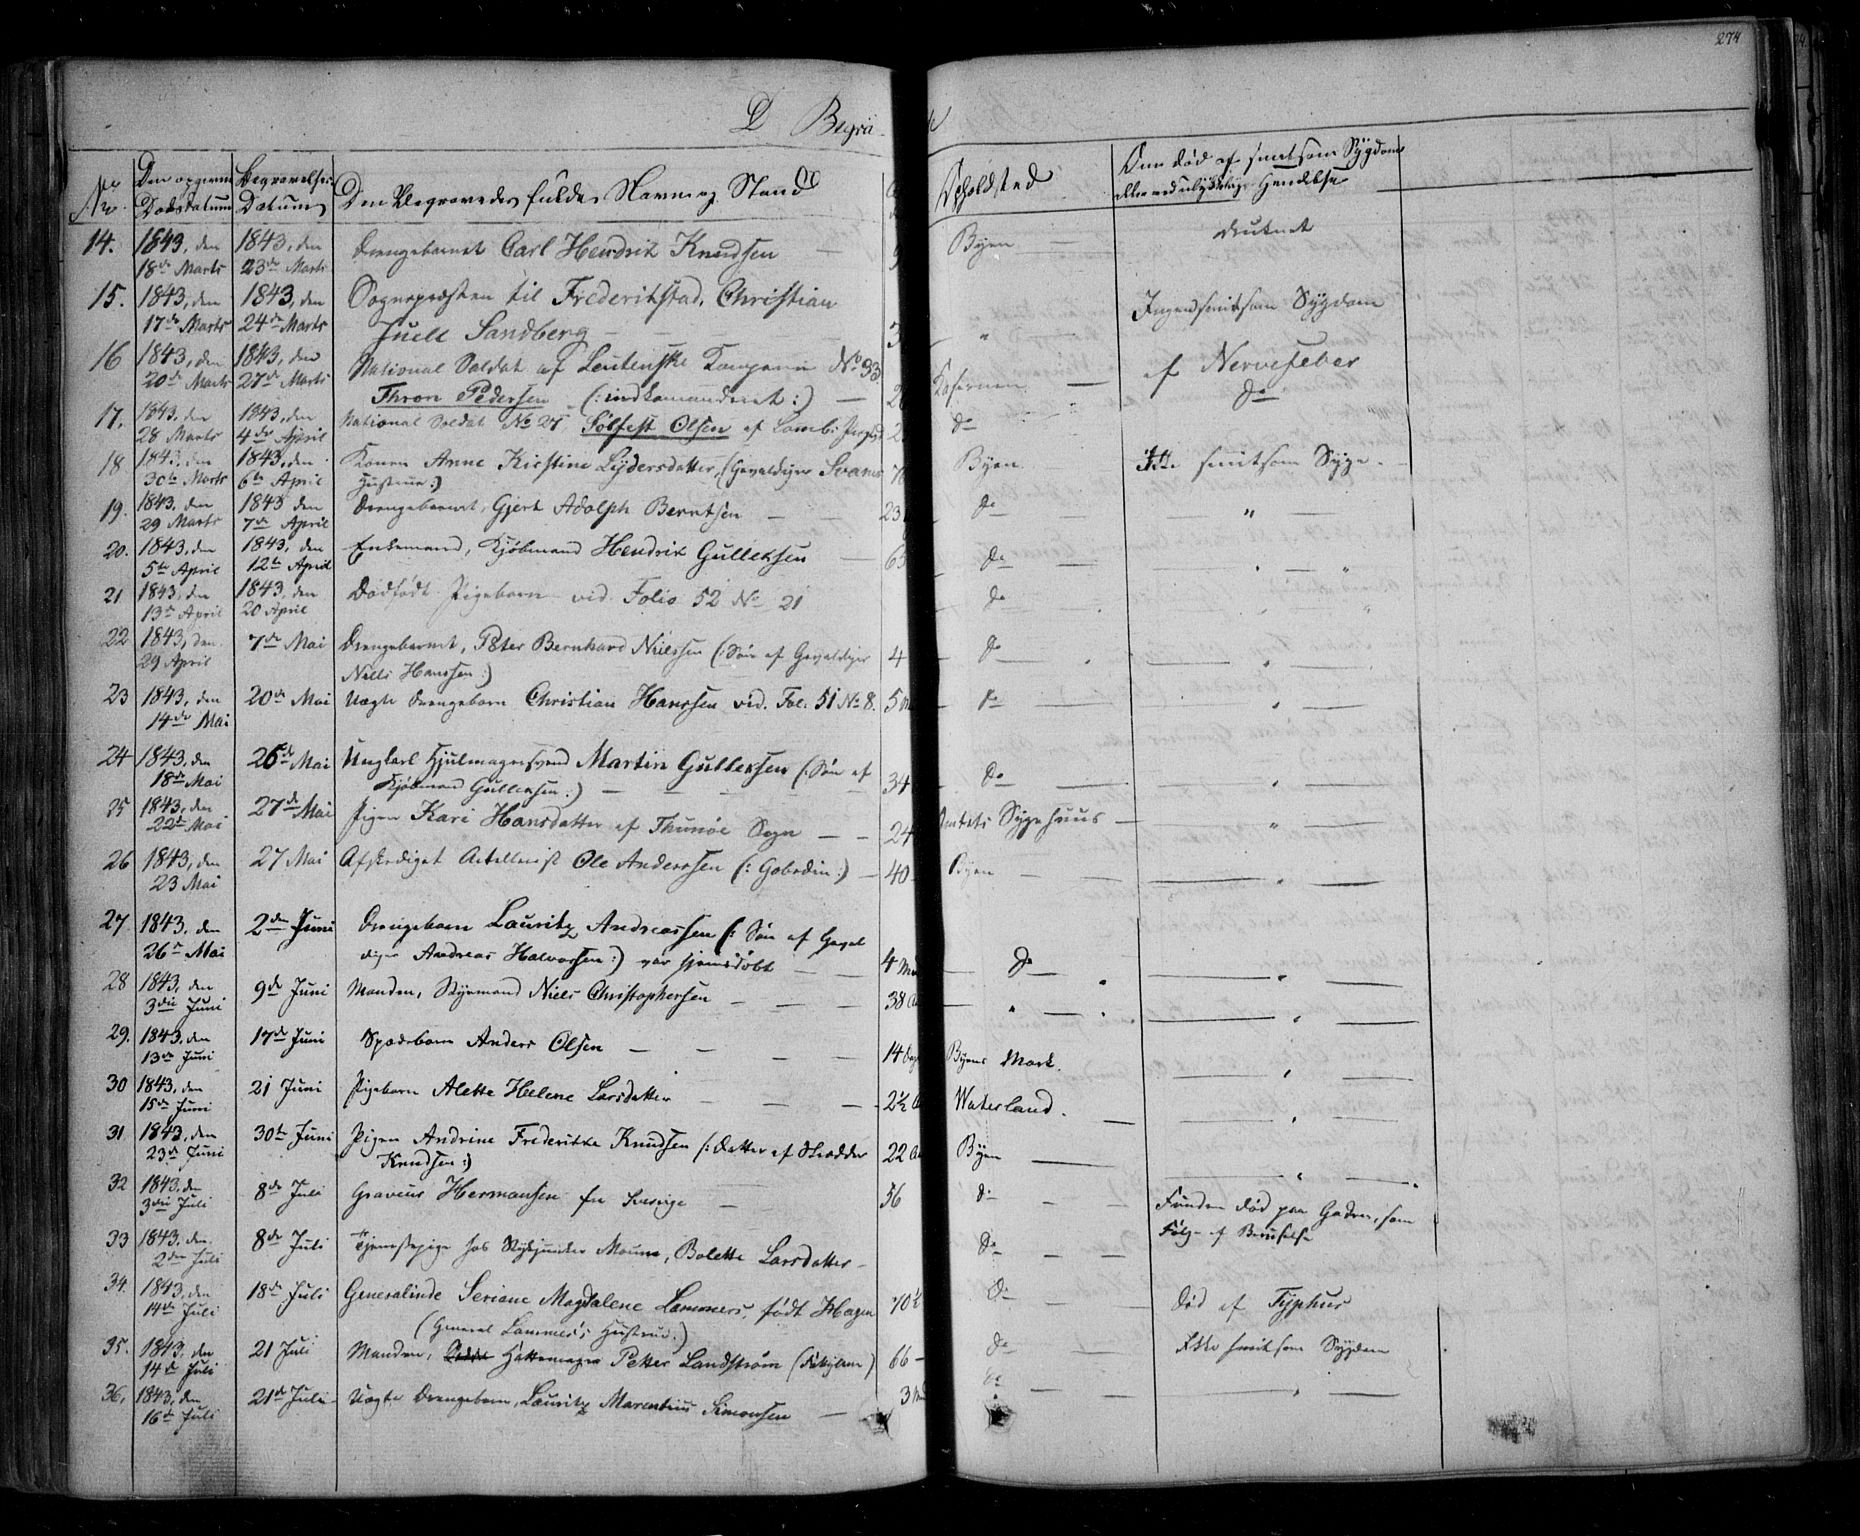 274
D Begra
No. Den opgivne Dødsdatum Begravelses Datum Den Begravedes fulde Navn og Stand Opholdsted Om død af smitsom Sygdom
eller ved ulykkelig Hændelse
14. 1843, den 1843, den Drengebarnet Carl Hendrik Knudsen — Byen — druknet
18de Marts 23de Marts
15. 1843, den 1843, den Sognepræsten til Frederikstad, Christian Ingen smitsom Sygdom
17de Marts 24de Marts Juell Sandberg — "
16 1843, den 1843, den National Soldat af Leutenske Kompagnie No 93 af Nervefeber
20de Marts 27de Marts Thron Pedersen (: indkomanderet :) — Kasernen —
17. 1843, den 1843, den National Soldat No 27 Sølfest Olsen af do do
28 Marts 4de April
18 1843, den 1843, den Konen Anne Kirstine Lydersdatter, (Gevaldiger Byen Ikke smitsom Syge
30te Marts 6te April Hustrue :)
19. 1843, den 1843 den Drengebarnet, Gjert Adolph Berntsen — 23 do — " —
29 Marts 7de April
20. 1843, den 1843, den Enkemand, Kjøbmand Hendrik Gulleksen — do — "
5te April 12te April
21 1843, den 1843, den Dødfødt Pigebarn vid. Folio 52 No 21 do "
13de April 20 April
22 1843, den 7de Mai Drengebarnet, Peter Bernhard Nielssen (: Søn af Gevaldiger 4 do — " —
29 April Niels Hanssen :)
23 1843, den 20de Mai Uægte Drengebarn Christian Hanssen vid. Fol. 51 No 8. 5 do — " —
14de Mai
24 1843, den 26de Mai Ungkarl Hjulmagersvend Martin Gulleksen (: Søn af 34 do — " —
18de Mai Kjøbmand Gulleksen :) —
25 1843, den 27de Mai Pigen Kari Hansdatter af Thunøe Sogn — 24 Sygehuus — " —
22de Mai
26 1843, den 27 Mai Afskediget Artillerist Ole Anderssen (: :) — 40 Byen — " —
23 Mai
27. 1843, den 2den Juni Drengebarn Lauritz Andreassen (: Søn af Geval
26de Mai diger Andreas Halvorsen :) var hjemdøbt — 4 do — " —
28 1843, den 9de Juni Manden, Styrmand Niels Christophersen — 38 " — " —
3die Juni
29. 1843, den 17de Juni Spædebarn Anders Olsen — 14 Dage Byens Mark. — " —
13de Juni
30 1843, den 21 Juni Pigebarn Alette Helene Larsdatter — 2½ Waterland. — " —
15de Juni
31. 1843, den 30te Juni Pigen Andrine Frederikke Knudsen (: Datter af Skrædder 22 Byen — " —
23de Juni Knudsen :)
32 1843, den 8de Juli Graveur Hermansen fra Sverige — 56 do — Funden død paa Gaden, som
3die Juli Følge af Beruselse
33 1843, den 8de Juli Tjenestepige hos Stykjunker Moum, Bolette Larsdatter — do —
2den Juli
34. 1843, den 18de Juli Generalinde Seriane Magdalene Lammers, født Hagen 70½ do — Død af Typhus
14de Juli (General Lammers's Hustrue :)
35. 1843, den 21 Juli Manden, Hattemager Petter Landstrøm 66 — do — Ikke smitsom Sygdom
14de Juli
36. 1843, den 21de Juli Uægte Drengebarn, Lauritz Marentius Simonsen — 3 do — " —
16de Juli